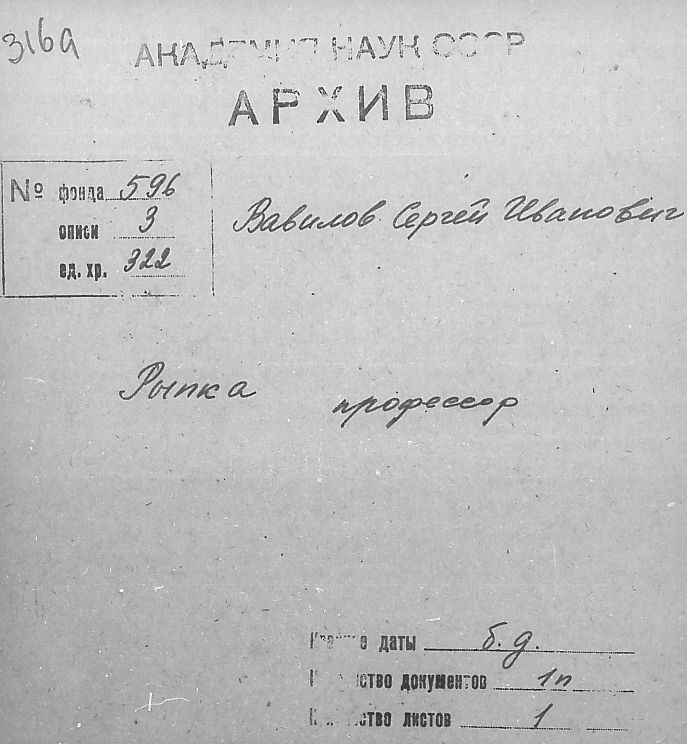 316а
АКАДЕМИЯ НАУК СССР
АРХИВ
№ фонда 596
описи 3
ед. хр. 322
Вавилов Сергей Иванович
Рыпка профессор
даты б.д.
документов 1п
листов 1